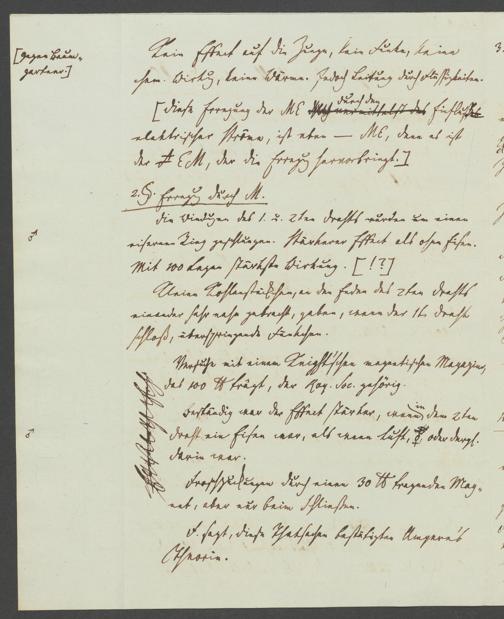 [gegen Baum-
gartner.]
Kein Effect auf die Zunge, kein Funke, keine
chem. Wirkg, keine Wärme. Jedoch Leitung durch Flüssigkeiten.
[diese Erregung der ME durch den Einfluß
elektrischer Ströme, ist eben — ME, denn es ist
der EM, der die Erregg hervorbringt.]
2. §. Erregg durch M.
Die Windungen des 1. u. 2ten Drahts wurden um einen
♂ eisernen Ring geschlungen. Stärkerer Effect als ohne Eisen.
Mit 100 Lagen stärkste Wirkung. [!?]
Kleine Kohlenstückchen, an den Enden des 2ten Drahts
einander sehr nahe gebracht, gaben, wenn der 1te Draht
schloß, überspringende Fünkchen.
Versuche mit einem Knight'schen magnetischen Magazin,
das 100 ℔ trägt, der Roy. Soc. gehörig.
Beständig war der Effect stärker, wenn in dem 2ten
♂ Draht ein Eisen war, als wenn Luft, ♀ oder dergl.
darin war.
Froschzuckungen durch einen 30 ℔ tragenden Mag-
net, aber nur beim Schließen.
F. sagt, diese Thatsachen bestätigten Ampere's
Theorie.